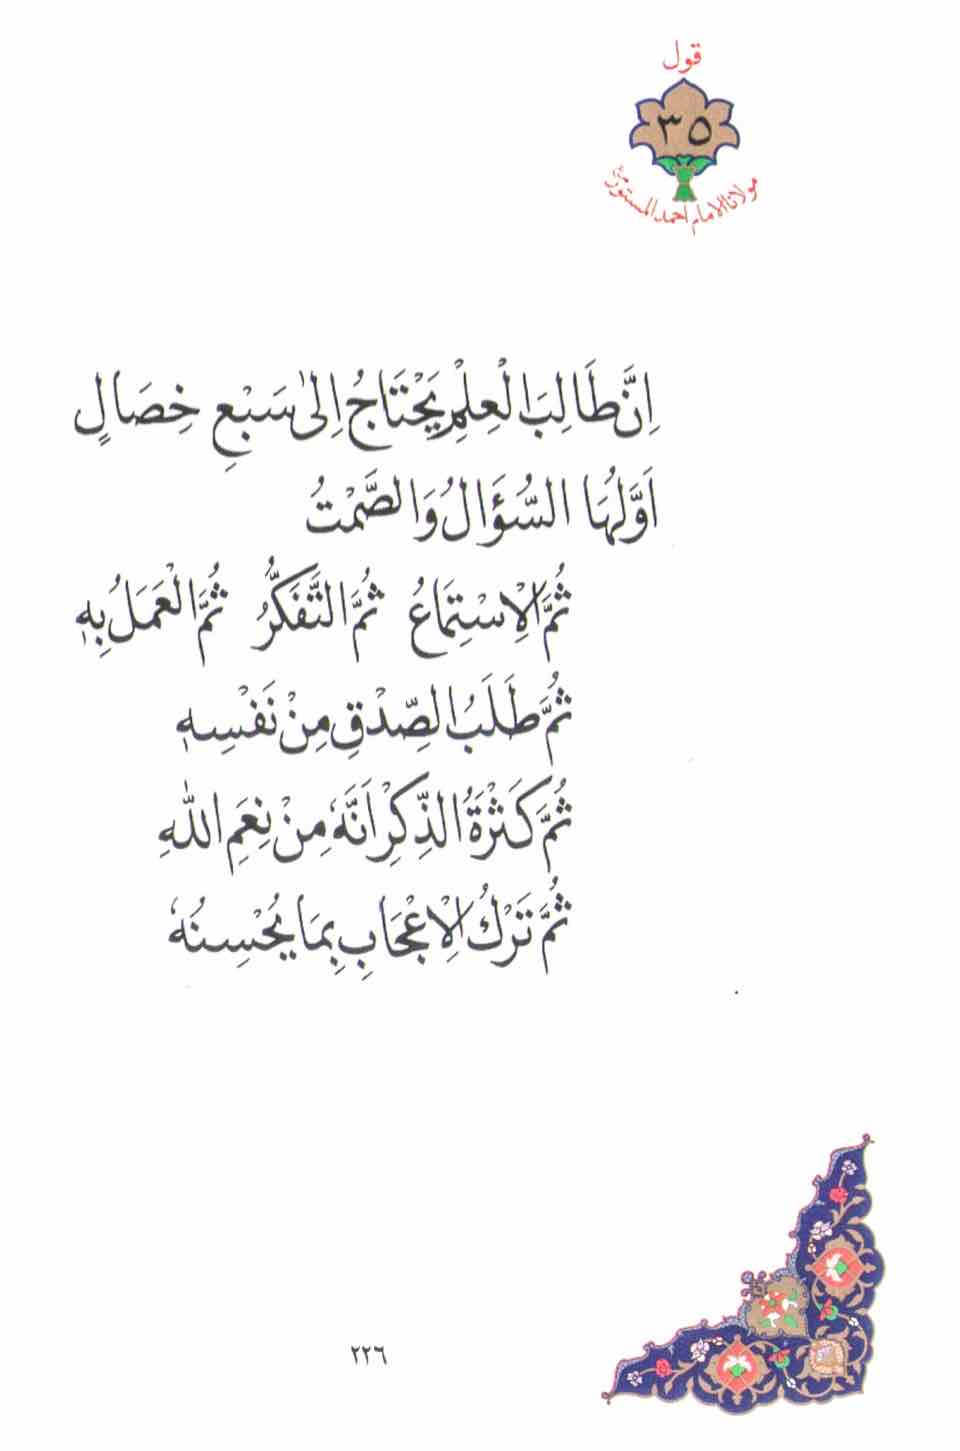 قول
٣٥
مولانا الامام احمد المستور
اِنَّ طَالِبَ الْعِلْمِ يَحْتَاجُ اِلىٰ سَبْعِ خِصَالٍ
اَوَّلُهَا السُّؤَالُ وَالصَّمْتُ
ثُمَّ الْاِسْتِمَاعُ ثُمَّ التَّفَكُّرُ ثُمَّ الْعَمَلُ بِهٖ
ثُمَّ طَلَبُ الصِّدْقِ مِنْ نَفْسِهٖ
ثُمَّ كَثْرَةُ الذِّكِرْ اَنَّهٗ مِنْ نِعَمِ اللهِ
ثُمَّ تَرْكُ الْاِعْجَابِ بِمَا يُحْسِنُهٗ
٢٢٦